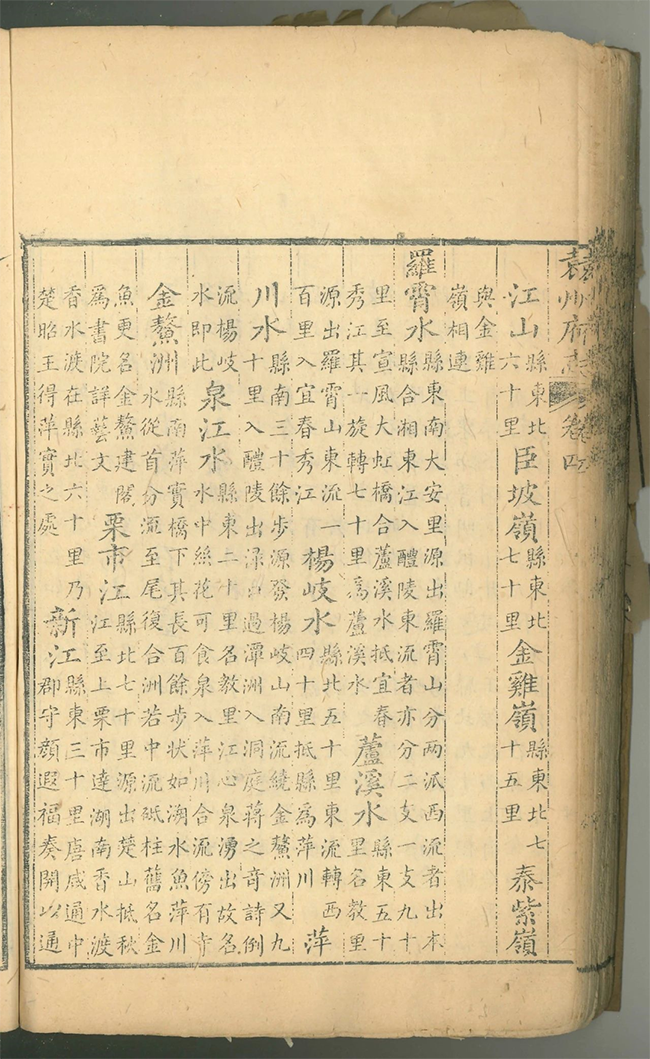 袁州府志 卷四
江山縣東北六十里臣坡嶺縣東北七十里金雞嶺縣東北七十五里泰紫嶺
與金雞嶺相連
羅霄水縣東南大安里源出羅霄山分两派西流者出本縣合湘東江入醴陵東流者亦分二支一支九十
里至宣風大虹橋合蘆溪水抵宜春秀江其一旋轉七十里爲蘆溪水蘆溪水縣東五十里名教里
源出羅霄山東流一百里入宜春秀江楊岐水縣北五十里東流轉西四十里抵縣爲萍川萍
川水縣南三十餘步源發楊岐山南流繞金鰲洲又九十里入醴陵出渌口過潭洲入洞庭蔣之奇詩倒
流楊岐水即此泉江水縣東二十里名教里江心泉湧出故名水中絲花可食泉入萍川合流傍有寺
金鰲洲縣南萍實橋下其長百餘步状如淵水魚萍川水從首分流至尾復合洲若中流砥柱舊名金
魚更名金鰲建閣爲書院詳藝文栗市江縣北七十里源出楚山抵秋江至上栗市達湖南香水渡
香水渡在縣北六十里乃楚昭王得萍實之處新江縣東三十里唐咸通中郡守顔遐福奏開以通